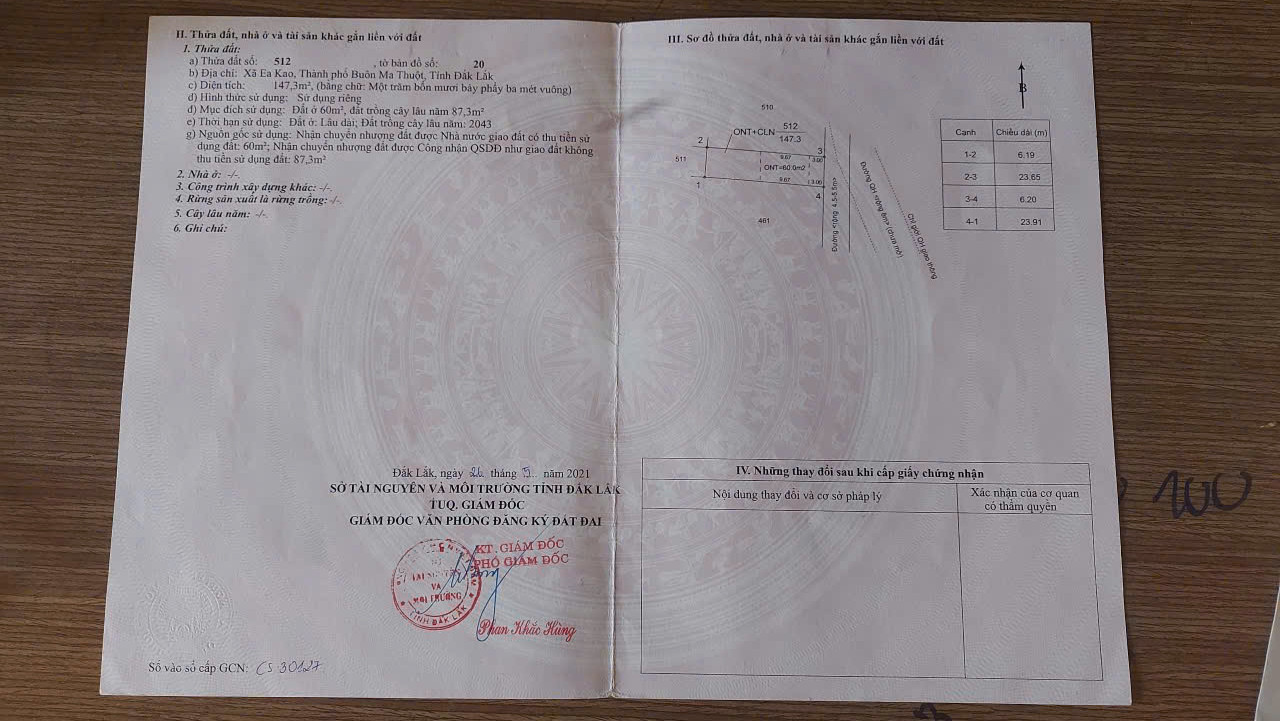 II. Thửa đất, nhà ở và tài sản khác gắn liền với đất
1. Thửa đất:
a) Thửa đất số: 512 , tờ bản đồ số: 20
b) Địa chỉ: Xã Ea Kao, Thành phố Buôn Ma Thuột, Tỉnh Đắk Lắk
c) Diện tích: 147,3m², (bằng chữ: Một trăm bốn mươi bảy phẩy ba mét vuông)
d) Hình thức sử dụng: Sử dụng riêng
đ) Mục đích sử dụng: Đất ở 60m², đất trồng cây lâu năm 87,3m²
e) Thời hạn sử dụng: Đất ở: Lâu dài; Đất trồng cây lâu năm: 2043
g) Nguồn gốc sử dụng: Nhận chuyển nhượng đất được Nhà nước giao đất có thu tiền sử
dụng đất: 60m²; Nhận chuyển nhượng đất được Công nhận QSDĐ như giao đất không
thu tiền sử dụng đất: 87,3m²
2. Nhà ở: -/-.
3. Công trình xây dựng khác: -/-.
4. Rừng sản xuất là rừng trồng: -/-.
5. Cây lâu năm: -/-.
6. Ghi chú:
Đắk Lắk, ngày 26 tháng năm 2021
SỞ TÀI NGUYÊN VÀ MÔI TRƯỜNG TỈNH ĐẮK LẮK
TUQ. GIÁM ĐỐC
GIÁM ĐỐC VĂN PHÒNG ĐĂNG KÝ ĐẤT ĐAI
KT. GIÁM ĐỐC
PHÓ GIÁM ĐỐC
TÀI NGUYÊN
VÀ
MÔI TRƯỜNG
TỈNH ĐẮK LẮK
Phan Khắc Hùng
Số vào sổ cấp GCN: CS 30127
III. Sơ đồ thửa đất, nhà ở và tài sản khác gắn liền với đất
B
510
2
ONT+CLN 512
147.3
3
511
9.67 3.00
ONT=60.0m2
9.67 3.00
1
4
461
Đường <rộng 4.5-5.5m>
Đường QH <rộng 8m> (chưa mở)
Chỉ giới QH giao thông
Cạnh Chiều dài (m)
1-2 6.19
2-3 23.65
3-4 6.20
4-1 23.91
IV. Những thay đổi sau khi cấp giấy chứng nhận
Nội dung thay đổi và cơ sở pháp lý
Xác nhận của cơ quan
có thẩm quyền
100